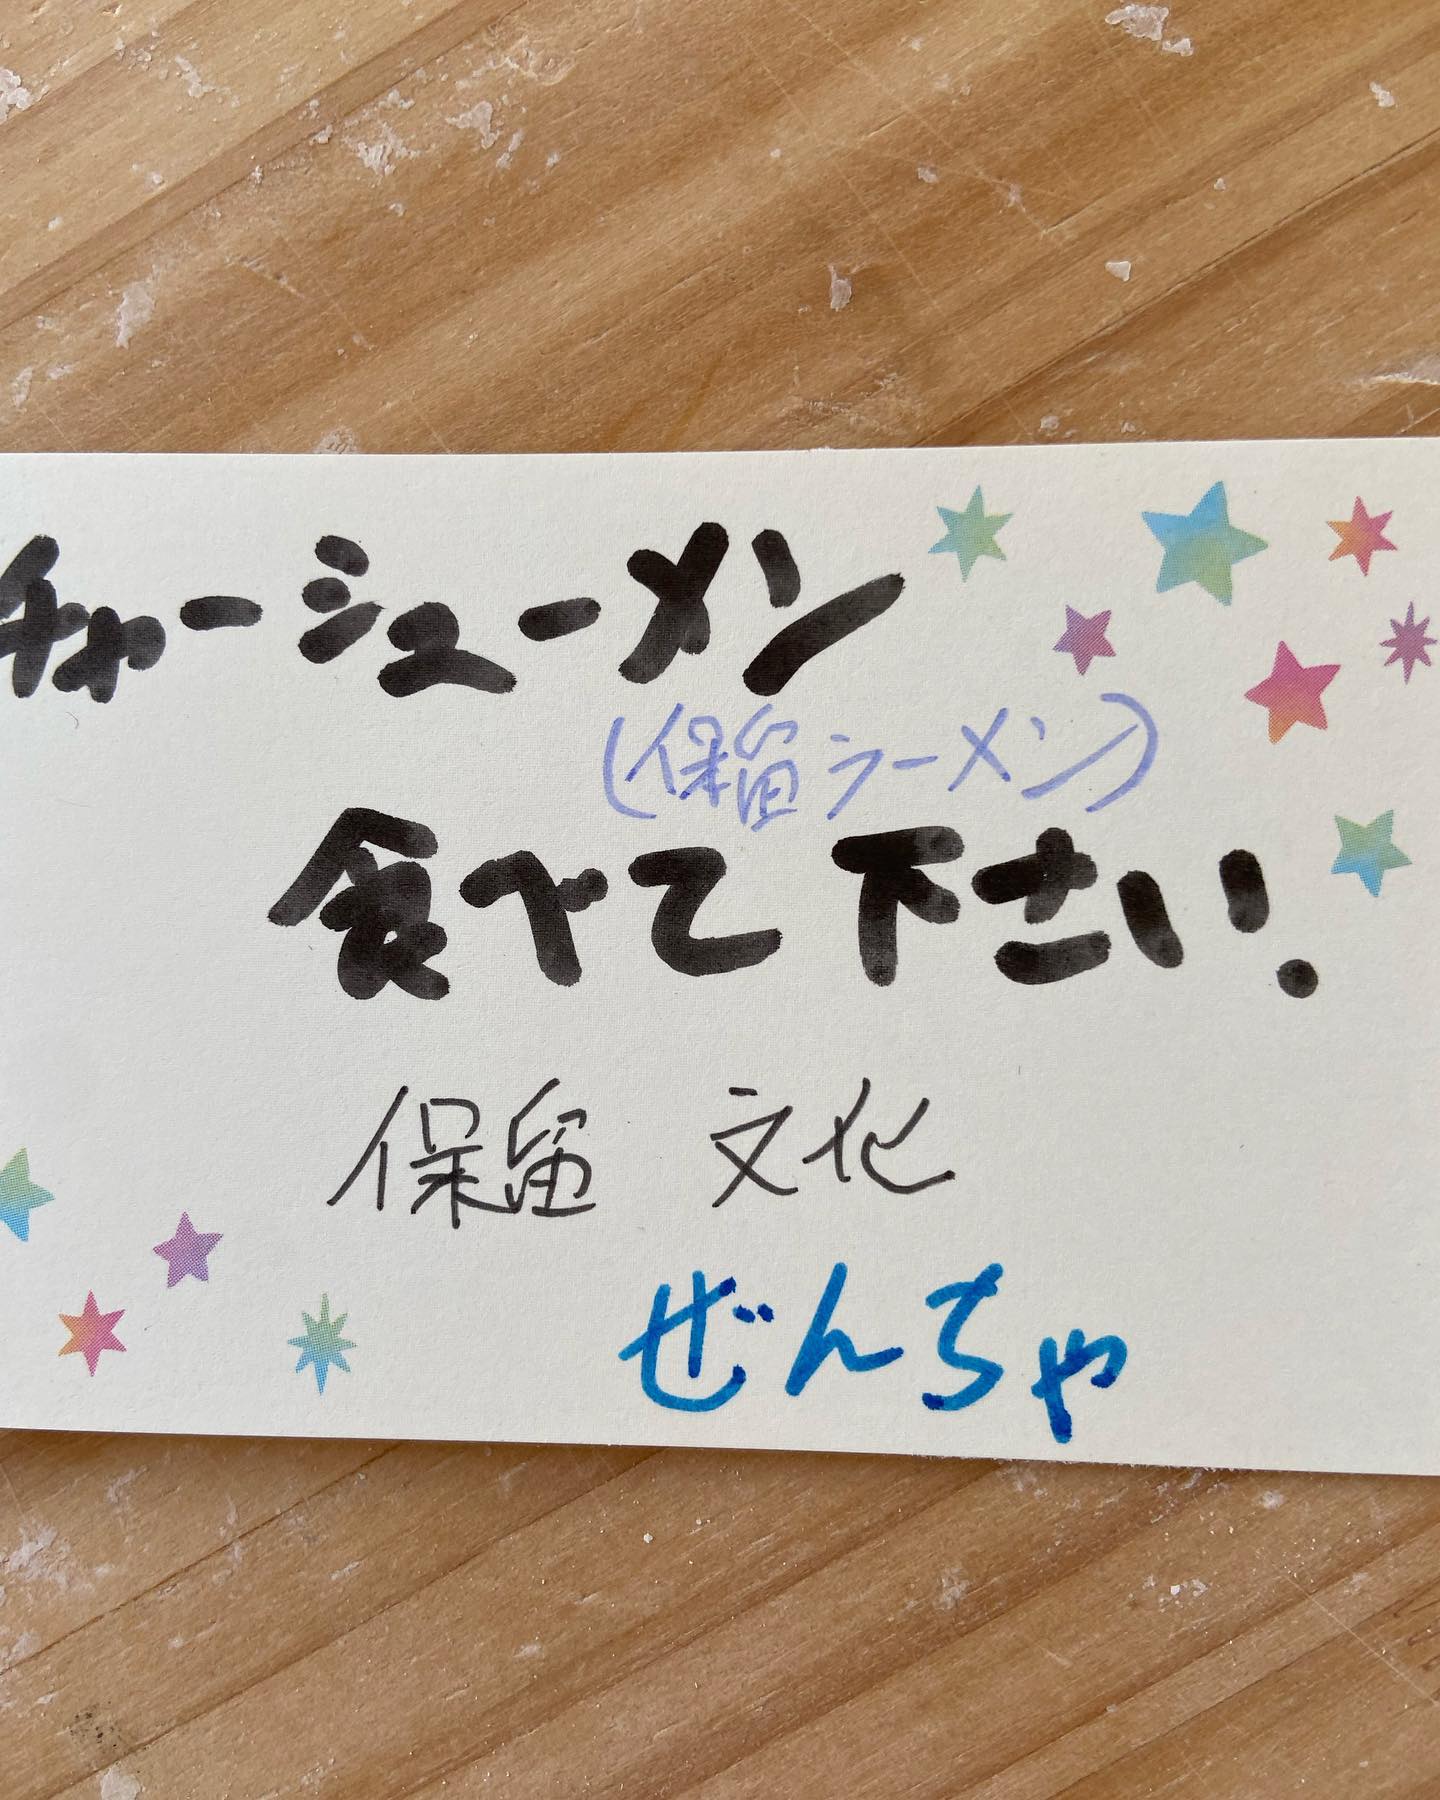 チャーシューメン
(保留ラーメン)
食べて下さい.
保留 文化
ぜんちゃ